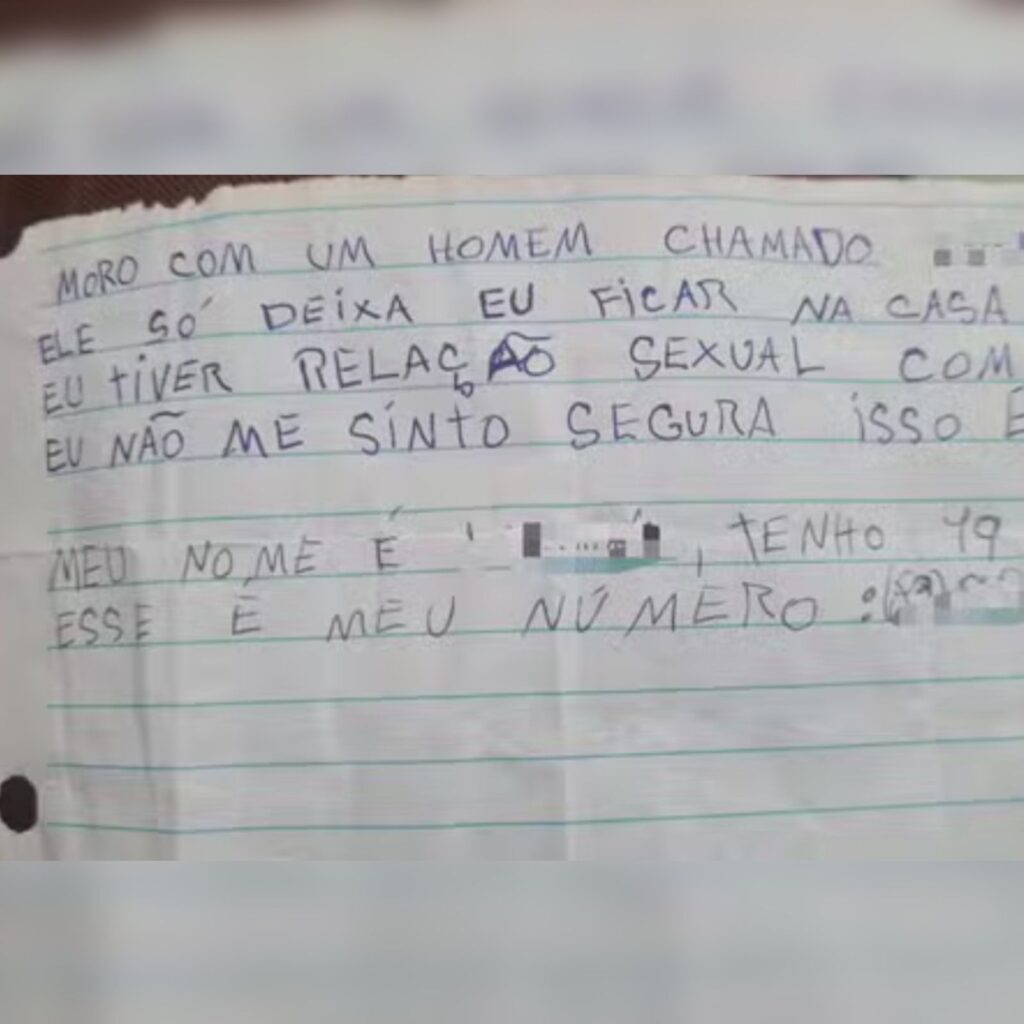 MORO COM UM HOMEM CHAMADO
ELE SÓ DEIXA EU FICAR NA CASA
EU TIVER RELAÇÃO SEXUAL COM
EU NÃO ME SINTO SEGURA ISSO É
MEU NOME É
, TENHO 19
ESSE É MEU NÚMERO :